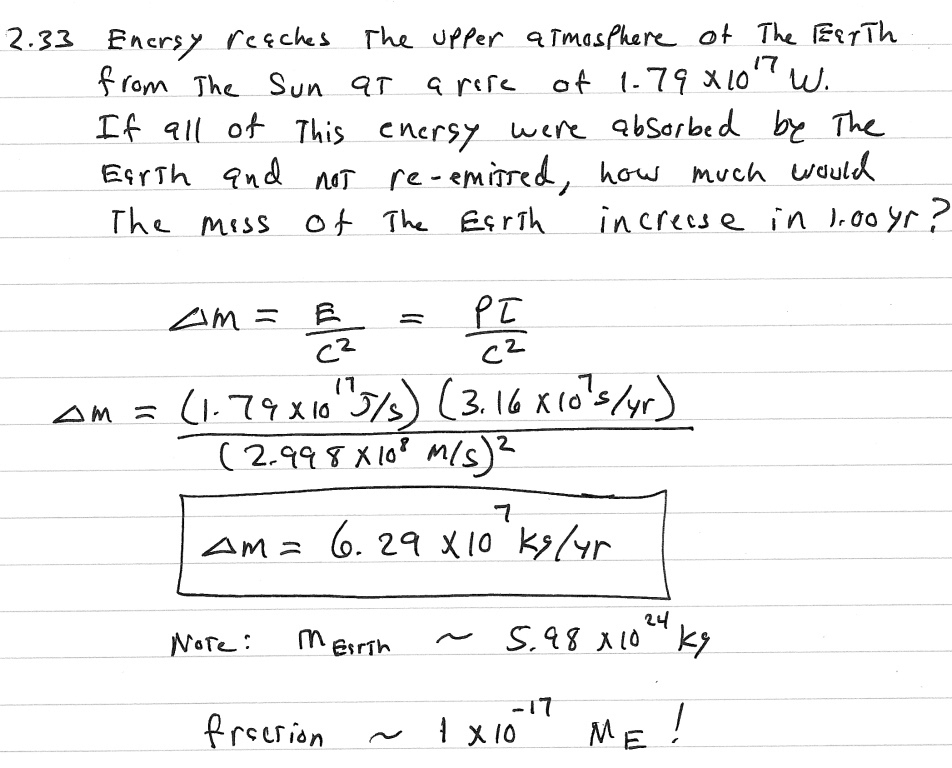 2.33 Energy reaches The upper atmosphere of The Earth
from The Sun at a rate of 1.79 x 10¹⁷ W.
If all of This energy were absorbed by The
Earth and not re-emitted, how much would
The mass of The Earth increase in 1.00 yr?
Δm = E/c² = PI/c²
Δm = (1.79 x 10¹⁷ J/s) (3.16 x 10⁷ s/yr)
(2.998 x 10⁸ m/s)²
Δm = 6.29 x 10⁷ kg/yr
Note: m Earth ~ 5.98 x 10²⁴ kg
fraction ~ 1 x 10⁻¹⁷ M_E!